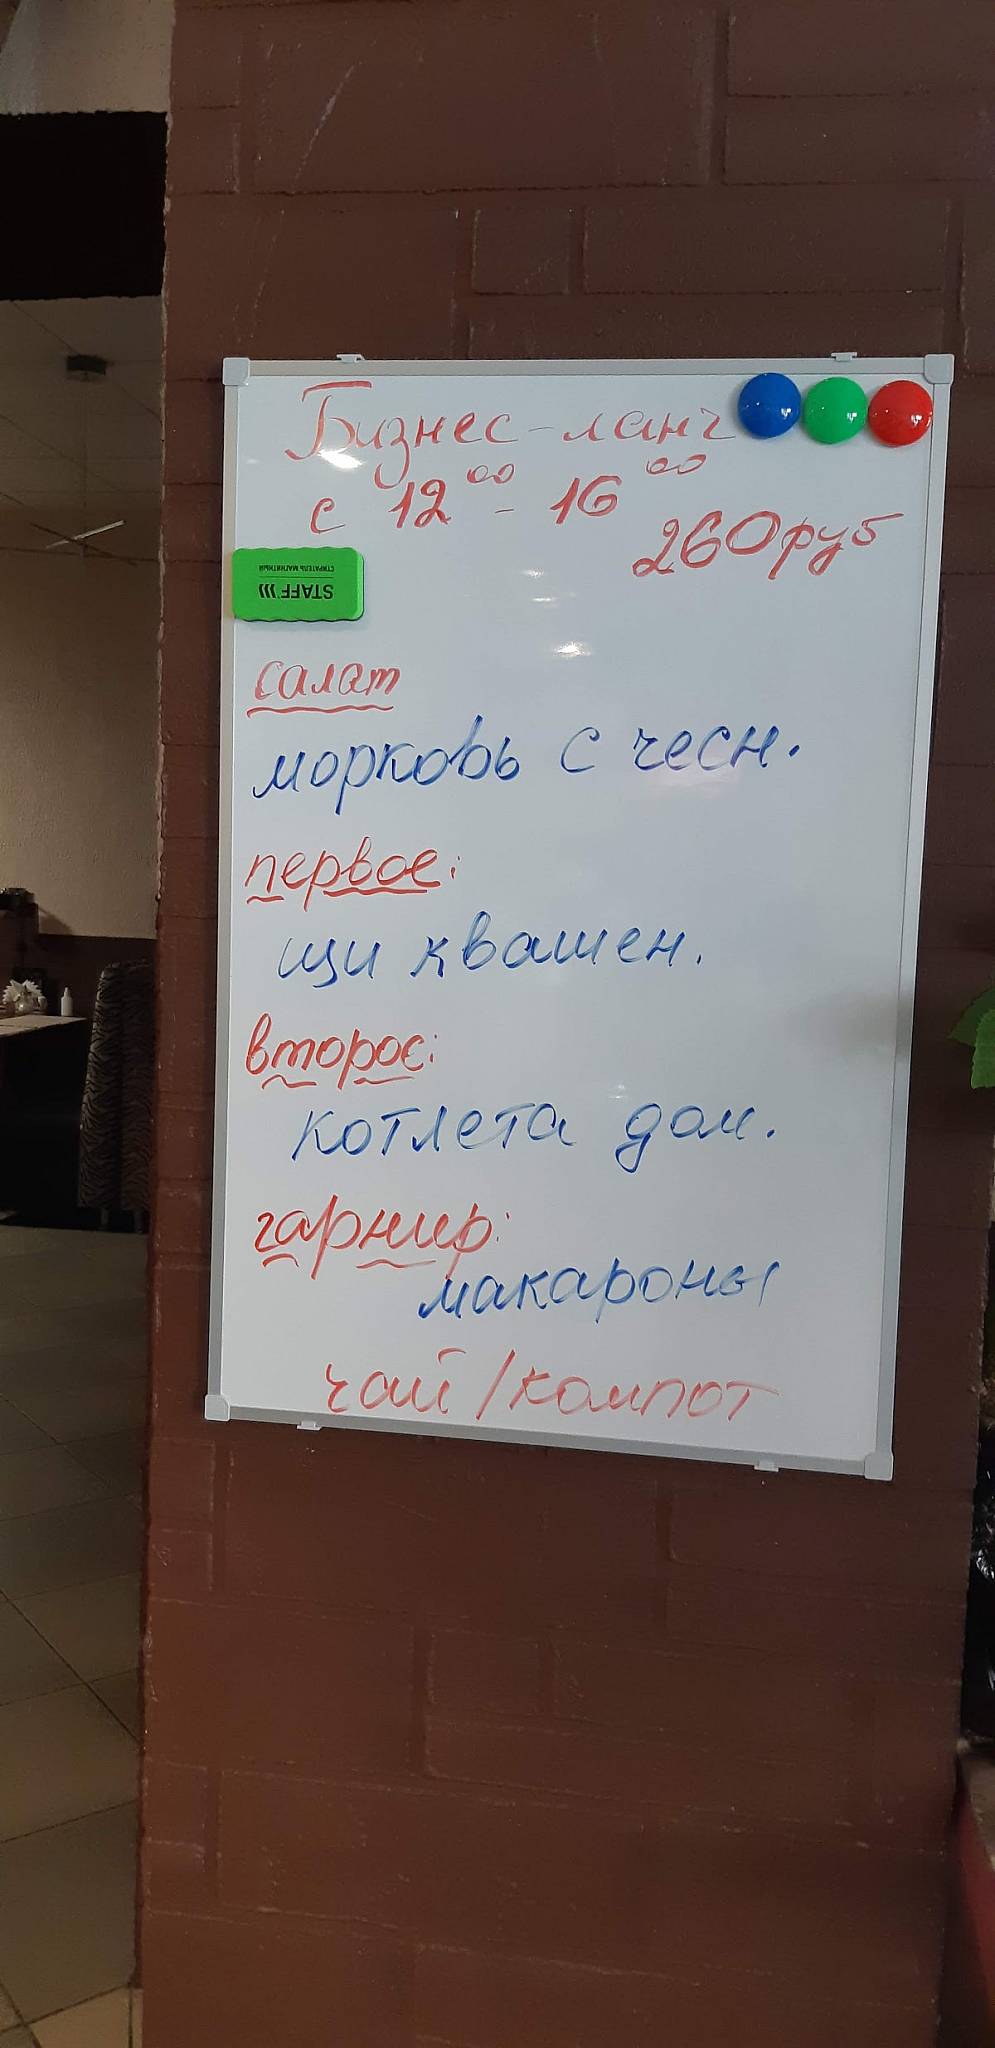 Бизнес-ланч
с 12⁰⁰ - 16⁰⁰
260 руб
STAFF
СТИРАТЕЛЬ МАГНИТНЫЙ
салат
морковь с чесн.
первое:
щи квашен.
второе:
котлета дом.
гарнир:
макароны
чай/компот